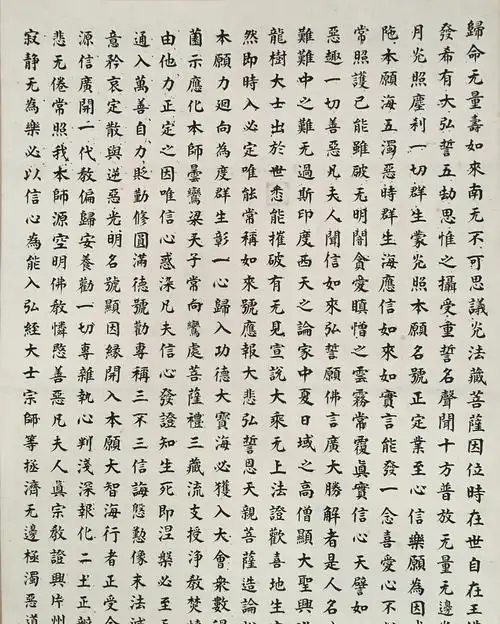 歸命无量壽如來南无不可思議光法藏菩薩因位時在世自在王
發希有大弘誓五劫思惟之攝受重誓名聲聞十方普放无量无邊
月光照塵刹一切群生蒙光照本願名號正定業至心信樂願為因
陁本願海五濁惡時群生海應信如來如實言能發一念喜愛心不
常照護已能雖破无明闇貪愛瞋憎之雲霧常覆眞實信心天譬如
惡趣一切善惡凡夫人聞信如來弘誓願佛言廣大勝解者是人名
難難中之難无過斯印度西天之論家中夏日域之高僧顯大聖興
龍樹大士出於世悉能摧破有无見宣說大乘无上法證歡喜地生
然即時入必定唯能常稱如來號應報大悲弘誓恩天親菩薩造論
本願力迴向為度群生彰一心歸入功德大寶海必獲入大會衆數
薗示應化本師曇鸞梁天子常向鸞處菩薩禮三藏流支授淨教焚
由他力正定之因唯信心惑染凡夫信心發證知生死即涅槃必至无
通入萬善自力貶勤修圓滿德號勸專稱三不三信誨慇懃像末法滅
意矜哀定散與逆惡光明名號顯因緣開入本願大智海行者正受金
源信廣開一代教偏歸安養勸一切專雜執心判淺深報化二土正辨
悲无倦常照我本師源空明佛教憐愍善惡凡夫人眞宗教證興片州
寂静无為樂必以信心為能入弘経大士宗師等拯濟无邊極濁惡道